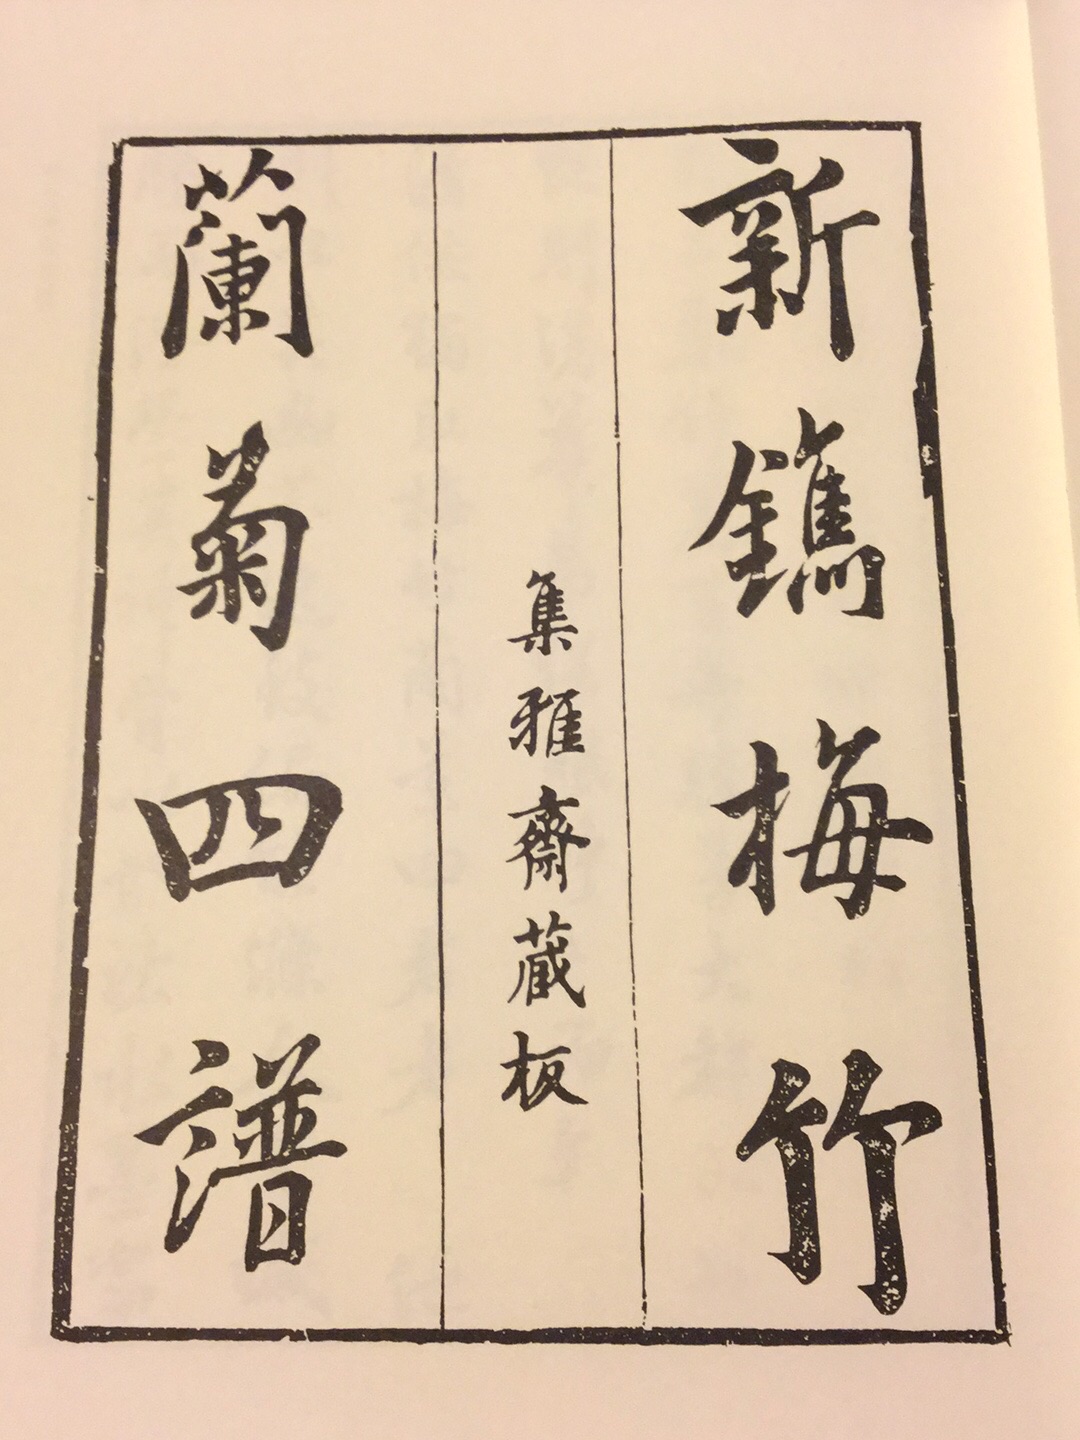 新鐫梅竹
集雅齋藏板
蘭菊四譜